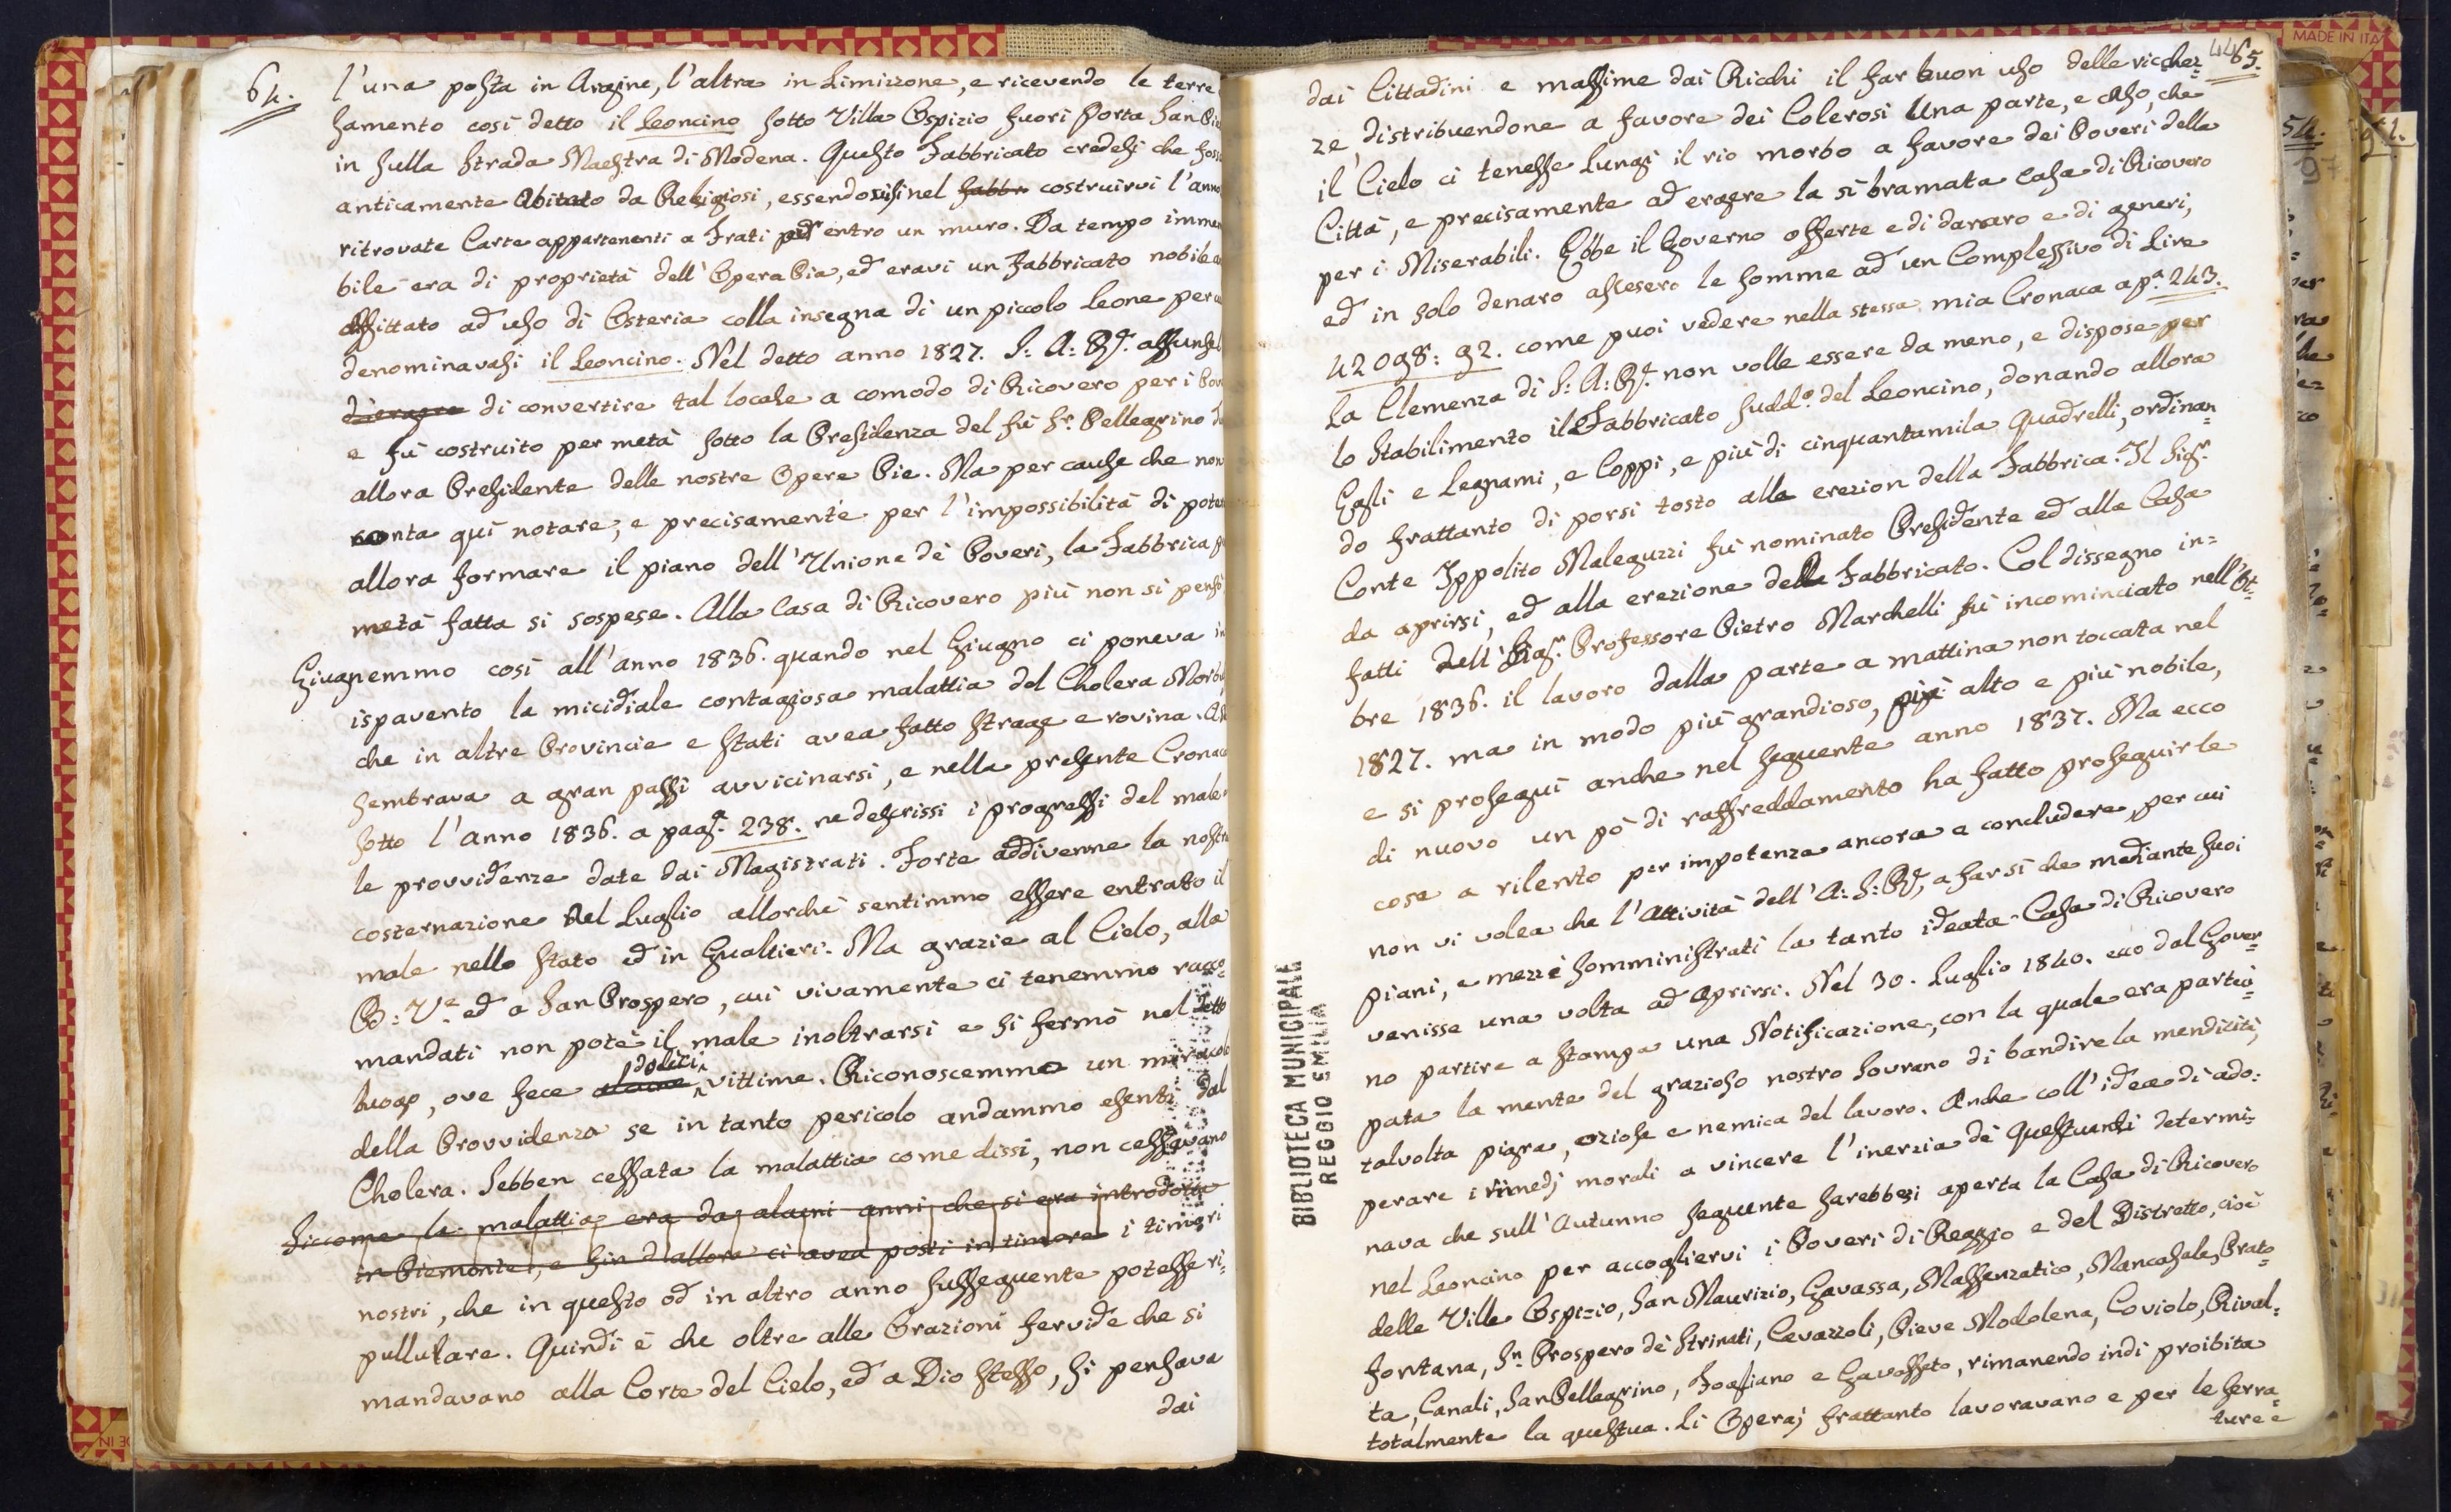 64.
l'una posta in Argine, l'altra in Limizzone, e ricevendo le terre
samento così detto il Leoncino sotto Villa Ospizio fuori Porta San Pie
in sulla Strada Maestra di Modena. Questo Fabbricato credesi che foss
anticamente abitato da Religiosi, essendosi nel fabbr costruirvi l'anno
ritrovate Carte appartenenti a Frati entro un muro. Da tempo imme
bile era di proprietà dell'Opera Pia, ed eravi un Fabbricato nobile
affittato ad uso di Osteria colla insegna di un piccolo Leone per
denominavasi il Leoncino. Nel detto anno 1827. S: A: R. assunse
d'erogere di convertire tal locale a comodo di Ricovero per i Pov
e fù costruito per metà sotto la Presidenza del fù Sr. Pellegrino
allora Presidente delle nostre Opere Pie. Ma per cause che non
conta quì notare, e precisamente per l'impossibilità di poter
allora formare il piano dell'Unione dè Poveri, la Fabbrica p
metà fatta si sospese. Alla Casa di Ricovero più non si pensò
Giugnemmo così all'anno 1836. quando nel Giugno ci poneva in
ispavento la micidiale contagiosa malattia del Cholera Morbus
che in altre Provincie e Stati avea fatto strage e rovina.
sembrava a gran passi avvicinarsi, e nella presente Cronaca
sotto l'anno 1836. a pag.a 238. ne descrissi i progressi del male
le provvidenze date dai Magistrati. Forte addivenne la nostra
costernazione nel Luglio allorchè sentimmo essere entrato il
male nello Stato ed in Gualtieri. Ma grazie al Cielo, alla
B: Ve. ed a San Prospero, cui vivamente ci tenemmo racco=
mandati non potè il male inoltrarsi e si fermò nel detto
dodici
luogo, ove fece alcune vittime. Riconoscemmo un miracolo
della Provvidenza se in tanto pericolo andammo esenti dal
Cholera. Sebben cessata la malattia come dissi, non cessavano
Siccome la malattia era da alcuni anni che si era introdotta
in Piemonte, e sin d'allora ci avea posti in timore i timori
nostri, che in questo od in altro anno susseguente potesse ri=
pullulare. Quindi è che oltre alle Orazioni fervide che si
mandavano alla Corte del Cielo, ed a Dio stesso, si pensava
dai
465.
dai Cittadini e massime dai Ricchi il far buon uso delle ricchez=
ze distribuendone a favore dei Colerosi una parte, e chso, che
il Cielo ci tenesse lungi il rio morbo a favore dei Poveri della
Città, e precisamente ad erogere la sì bramata Casa di Ricovero
per i Miserabili. Ebbe il Governo offerte e di danaro e di generi,
ed in solo denaro ascesero le somme ad un Complessivo di Lire
42098: 92. come puoi vedere nella stessa mia Cronaca a p.a 243.
La Clemenza di S: A: R. non volle essere da meno, e dispose per
lo Stabilimento il Fabbricato sudd.o del Leoncino, donando allora
Gessi e Legnami, e Coppi, e più di cinquantamila Quadrelli, ordinan=
do frattanto di porsi tosto alla erezion della Fabbrica. Il Sigr.
Conte Ippolito Maleguzzi fù nominato Presidente ed alla Casa
da aprirsi, ed alla erezione della Fabbricato. Col dissegno in=
fatti dell' Sigr. Professore Pietro Marchelli fù incominciato nell'Ot=
bre 1836. il lavoro dalla parte a mattina non toccata nel
1827. ma in modo più grandioso, più alto e più nobile,
e si proseguì anche nel seguente anno 1837. Ma ecco
di nuovo un pò di raffreddamento ha fatto proseguir le
cose a rilento per impotenza ancora a concludere, per cui
non vi volea che l'attività dell'A: S: R, a far sì che mediante suoi
piani, e mezzi somministrati la tanto ideata Casa di Ricovero
venisse una volta ad aprirsi. Nel 30. Luglio 1840. ecco dal Gover=
no partire a stampa una Notificazione, con la quale era parteci=
pata la mente del grazioso nostro Sovrano di bandire la mendicità,
talvolta pigra, oziosa e nemica del lavoro. Anche coll'idea di ado=
perare i rimedj morali a vincere l'inerzia dè Questuanti determi=
nava che sull'Autunno seguente sarebbesi aperta la Casa di Ricovero
nel Leoncino per accogliervi i Poveri di Reggio e del Distretto, cioè
delle Ville Ospizio, San Maurizio, Gavassa, Massenzatico, Mancasale, Prato=
fontana, Sn. Prospero dè Strinati, Cavazzoli, Pieve Modolena, Coviolo, Rival=
ta, Canali, San Pellegrino, Fogliano e Gavasseto, rimanendo indi proibita
totalmente la questua. Li Operaj frattanto lavoravano e per le serra=
ture e
BIBLIOTECA MUNICIPALE
REGGIO EMILIA
MADE IN ITA